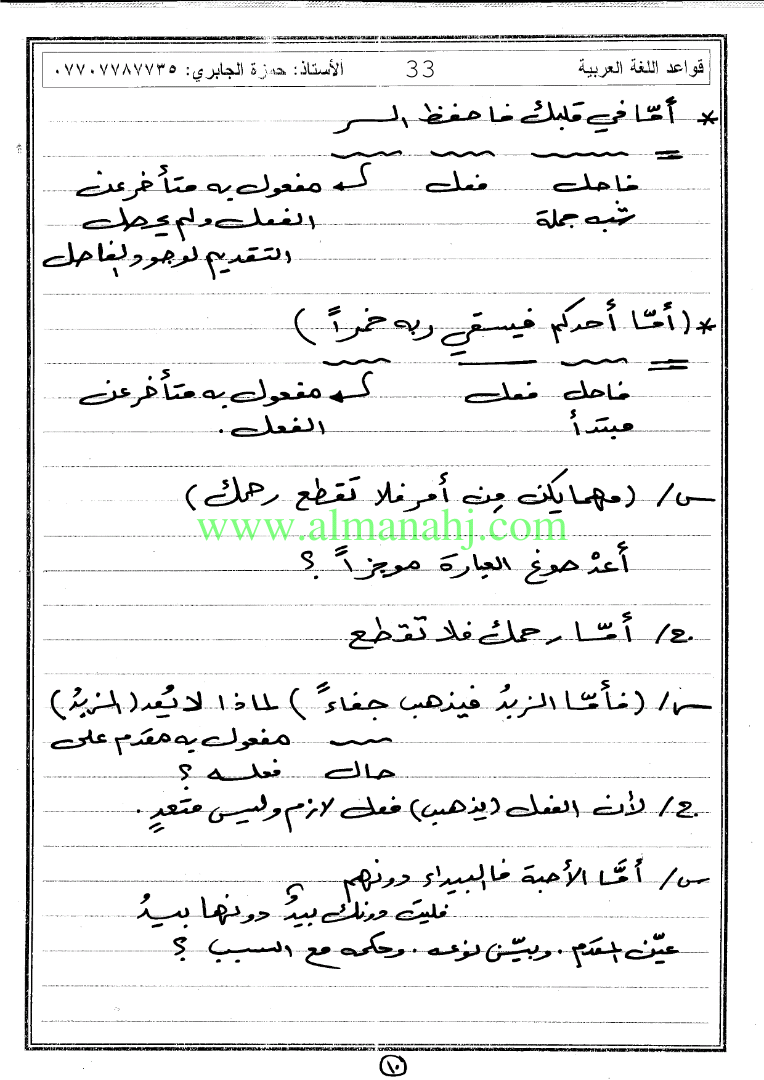 قواعد اللغة العربية 33 الأستاذ: حمزة الجابري: ٠٧٧٠٧٧٨٧٧٣٥
* أمّا في قلبك فاحفظ السر
فاصل فعل مفعول به متأخر عن
شبه جملة الفعل ولم يحصل
التقديم لوجود الفاصل
* (أمّا أحدكم فيسقي ربه خمراً)
فاصل فعل مفعول به متأخر عن
مبتدأ الفعل.
س/ (مهما يكن مِن أمر فلا تقطع رحمك)
www.almanahj.com
أعدْ صوغ العبارة موجزاً ؟
ج/ أمّا رحمك فلا تقطع
س/ (فأمّا الزبدُ فيذهب جفاءً) لماذا لا يُعد (الزبدُ)
مفعول به مقدم على
حال فعله ؟
ج/ لأن الفعل (يذهب) فعل لازم وليس متعدٍ.
س/ أمَّا الأحبة فالبيداء دونهم
فليت دونك بيدُ دونها بيدُ
عيّن المقدم. وبيّن نوعه. وحكمه مع السبب ؟
١٠